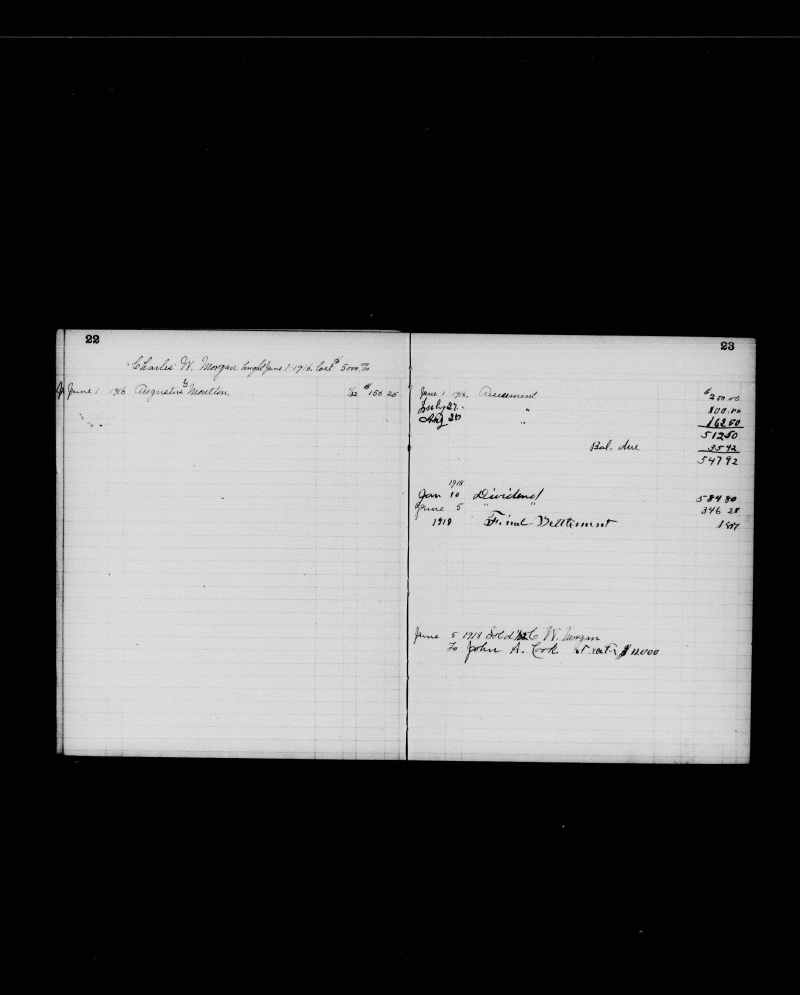 22
Charles W. Morgan bought June 1 1916 Cost $ 5000.
June 1 1916 Augustus G Moulton 1/32 $ 156 25
23
June 1 1916 Assessment $ 250 00
July 27 " 100.00
Aug 28 " 162 50
512 50
Bal. due 35 42
547 92
1918
Jan 10 Dividend 584 80
June 5 " " 346 28
1918 Final Settlement
June 5 1918 Sold 1/32 C W. Morgan
To John A. Cook at rate $ 11,000